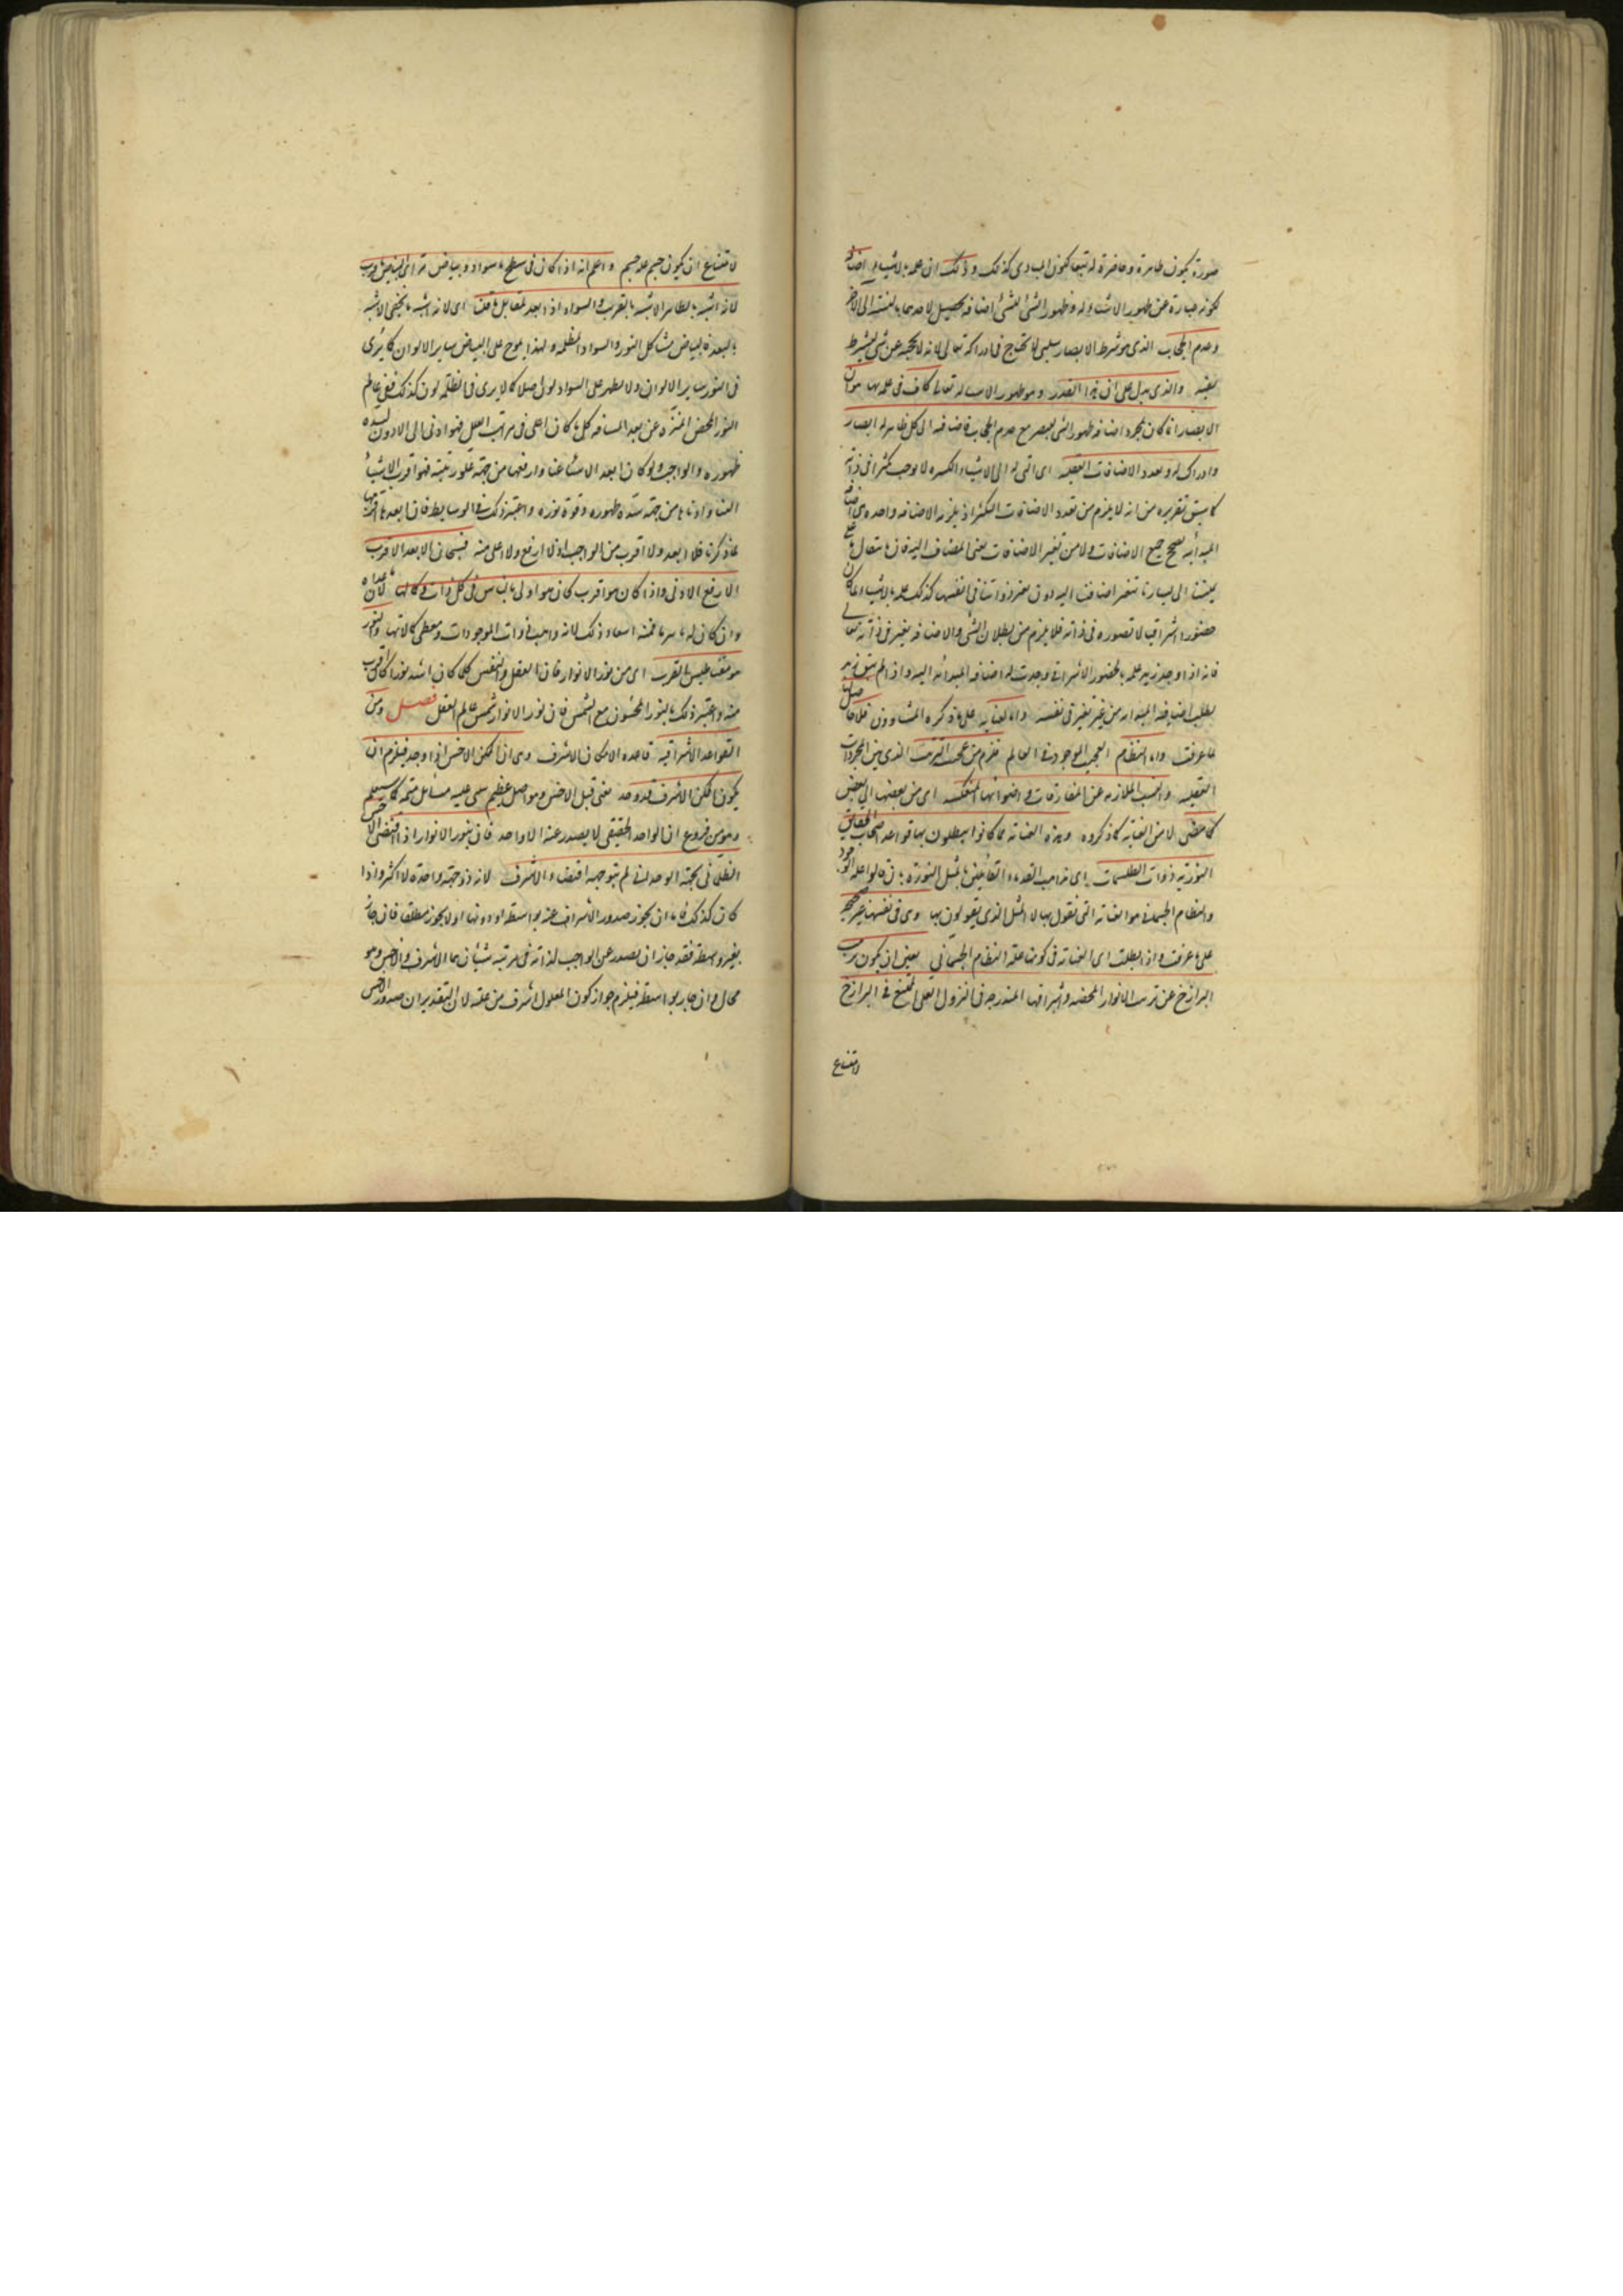 صورة يكون ظاهرة وحاضرة له تبعا لكون المبادى كذلك وذلك ان علمه بالاشياء اضافة
لكونه عبارة عن ظهور الاشياء له وظهور الشئ للشئ اضافة تحصيل لاحدهما بالنسبة الى الآخر
وعدم الحجاب الذى هو شرط الابصار سلبى لا يحتاج فى ادراكه تعالى لانه لا يحجبه عن شئ بشرط
والذى يدل على ان هذا القدر وهو ظهور الاشياء له تعالى كاف فى علمه بها هو ان
الابصار انما كان بمجرد اضافة ظهور الشئ للبصر مع عدم الحجاب فاضافته الى كل ظاهر له ابصار
وادراك له وتعدد الاضافات العقلية اى التى له الى الاشياء الكثيرة لا يوجب تكثرا فى ذاته
كما سبق تقريره من انه لا يلزم من تعدد الاضافات التكثر اذ يلزمه الاضافة واحدة هى اضافة
المبدأية تصحح جميع الاضافات ولا من تغير الاضافات يعنى المضاف اليه فان انتقال ما على
يميننا الى يسارنا تتغير اضافتنا اليه دون تغير ذواتنا فى انفسها كذلك علمه بالاشياء لما كان
حضورا اشراقيا لا تصوره فى ذاته فلا يلزم من بطلان الشئ والاضافة تغير فى ذاته تعالى
فانه اذا وجد زيد علمه بالحضور الاشراقى وجدت له اضافة المبدأية اليه واذا لم يبق زيد
بطلت اضافة المبدأية من غير تغير فى نفسه واما العناية على ما ذكره المشاؤون فلا حاصل لها
لما عرفت واما النظام العجيب الموجود فى العالم فلزم من عجيب الترتيب الذى بين المجردات
العقلية والنسب اللازمة عن المفارقات واضوائها المنعكسة اى من بعضها الى بعض
كما مضى لا من العناية كما ذكروه وهذه العناية مما كانوا يبطلون بها قواعد اصحاب الحقايق
النورية ذوات الطلسمات اى مذاهب القدماء القائلين بالمثل النورية بان قالوا علة الوجود
والنظام الجسمانى هو العناية التى نقول بها لا المثل الذى يقولون بها وهى فى نفسها غير صحيحة
على ما عرفت واذا بطلت اى العناية فى كونها علة النظام الجسمانى يتعين ان يكون ترتيب
البرازخ عن ترتيب الانوار المحضة واشراقها المندرجة فى النزول العلى الممتنع فى البرازخ
لامتناع
لامتناع ان يكون جسم علة جسم واعلم انه اذا كان فى سطح ما سواد وبياض تراآى البياض اقرب
لانه اشبه بالظاهر الاشبه بالقرب والسواد اذا ابعد لمقابل ما قلنا اى لانه اشبه بالخفى الاشبه
بالبعد فالبياض مشاكل النور والسواد الظلمة ولهذا يلوح على البياض ساير الالوان كما يرى
فى النور ساير الالوان ولا يظهر على السواد لون اصلا كما لا يرى فى الظلمة لون كذلك ففى عالم
النور المحض المنزه عن بعد المسافة كل ما كان اعلى فى مراتب العلل فهو ادنى الى الادون لشدة
ظهوره والواجب ولو كان ابعد الاشياء عنا وارفعها من جهة علو رتبته فهو اقرب الاشياء
الينا وادناها من جهة شدة ظهوره وقوة نوره واعتبر ذلك فى الوسايط فان ابعدها اقربها
لما ذكرنا فلا ابعد ولا اقرب من الواجب اذ لا ارفع ولا اعلى منه فسبحان الابعد الاقرب
الارفع الادنى واذا كان هو اقرب كان هو اولى بالتاثير فى كل ذات وكمالها لان ما عداه
وان كان له تاثير ما فمنه استفاد ذلك لانه واهب ذوات الموجودات ومعطى كمالاتها والنور
هو مغناطيس القرب اى من نور الانوار فان العقل والنفس كلما كان اشد نورا كان اقرب
منه واعتبر ذلك بالنور المحسوس مع الشمس فان نور الانوار شمس عالم العقل فصل ومن
القواعد الاشراقية قاعدة الامكان الاشرف وهى ان الممكن الاخس اذا وجد فيلزم ان
يكون الممكن الاشرف قد وجد يعنى قبل الاخس وهو اصل عظيم يبتنى عليه مسائل مهمة كما سيعلم
وهو من فروع ان الواحد الحقيقى لا يصدر عنه الا واحد فان نور الانوار اذا اقتضى الاخس
الظلمانى بجهة الوحدانية لم يبق جهة اقتضاء الاشرف لانه ذو جهة واحدة لا اكثر واذا
كان كذلك فاما ان يجوز صدور الاشراف عنه بواسطة او دونها او لا يجوز مطلقا فان جاز
بغير واسطة فقد جاز ان يصدر عن الواجب لذاته فى مرتبة شيئان هما الاشرف والاخس وهو
محال وان جاز بواسطة فيلزم جواز كون المعلول اشرف من علته لان التقدير ان صدور الاخس